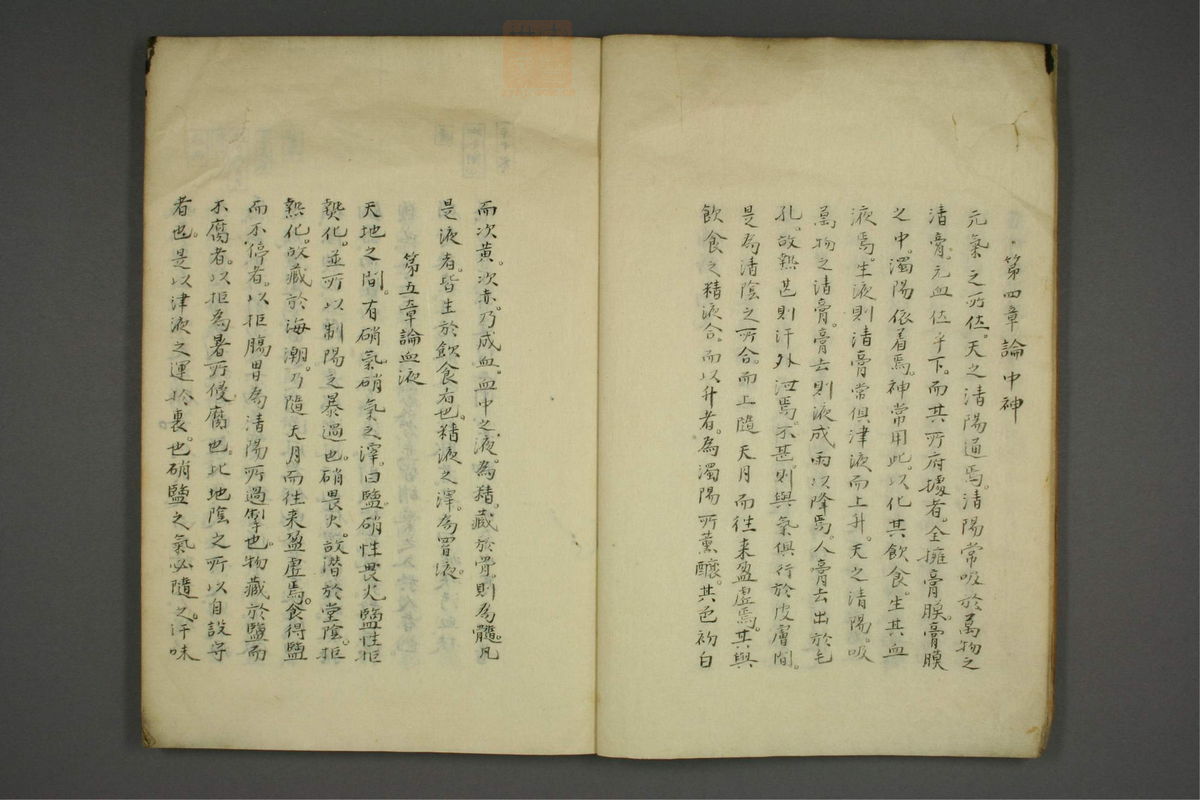 第四章論中神
元氣之所位。天之清陽通焉。清陽常吸於萬物之
清膏。元血位乎下。而其所府據者。全擁膏膜。膏膜
之中。濁陽依着焉。神常用此。以化其飲食。生其血
液焉。生液則清膏常俱津液而上升。天之清陽。吸
萬物之清膏。膏去則液成雨以降焉。人膏去出於毛
孔。故熱甚則汗外泄焉。不甚則與氣俱行於皮膚間。
是為清陰之所合。而上隨天月而往来盈虚焉。其與
飲食之精液合。而以升者。為濁陽所薫釀。其色初白
而次黄。次赤。乃成血。血中之液。為精。藏於骨。則為髓。凡
是液者。皆生於飲食者也。精液之澤。為胃液。
第五章論血液
天地之間。有硝氣。硝氣之澤。曰鹽。硝性畏火。鹽性拒
熱化。並所以制陽之暴過也。硝畏火。故潜於堂陰。拒
熱化。故藏於海潮。乃隨天月而往来盈虚焉。食得鹽
而不停者。以拒腸胃為清陽所過也。物藏於鹽而
不腐者。以拒為暑所侵腐也。此地陰之所以自設守
者也。是以津液之運於裏。也硝鹽之氣必隨之。汗味